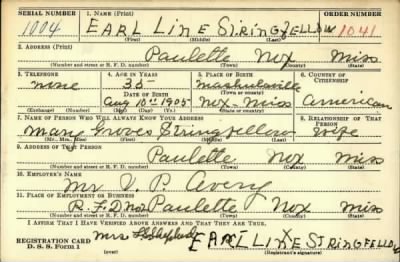 SERIAL NUMBER 1. NAME (Print) ORDER NUMBER
1004 EARL LINE STRINGFELLOW 1041
(First) (Middle) (Last)
2. ADDRESS (Print)
Paulette Nox Miss
(Number and street or R. F. D. number) (Town) (County) (State)
3. TELEPHONE 4. AGE IN YEARS 5. PLACE OF BIRTH 6. COUNTRY OF CITIZENSHIP
none 35 Mashulaville
DATE OF BIRTH (Town or county)
Aug 10th 1905 Nox-Miss American
(Exchange) (Number) (Mo.) (Day) (Yr.) (State or country)
7. NAME OF PERSON WHO WILL ALWAYS KNOW YOUR ADDRESS 8. RELATIONSHIP OF THAT PERSON
Mary Groves Stringfellow wife
(Mr., Mrs., Miss) (First) (Middle) (Last)
9. ADDRESS OF THAT PERSON
Paulette Nox Miss
(Number and street or R. F. D. number) (Town) (County) (State)
10. EMPLOYER'S NAME
Mr. V. P. Avery
11. PLACE OF EMPLOYMENT OR BUSINESS
R.F.D. Paulette Nox Miss
(Number and street or R. F. D. number) (Town) (County) (State)
I AFFIRM THAT I HAVE VERIFIED ABOVE ANSWERS AND THAT THEY ARE TRUE.
REGISTRATION CARD Mrs EARL LINE STRINGFELLOW
D. S. S. Form 1 (Registrant's signature)